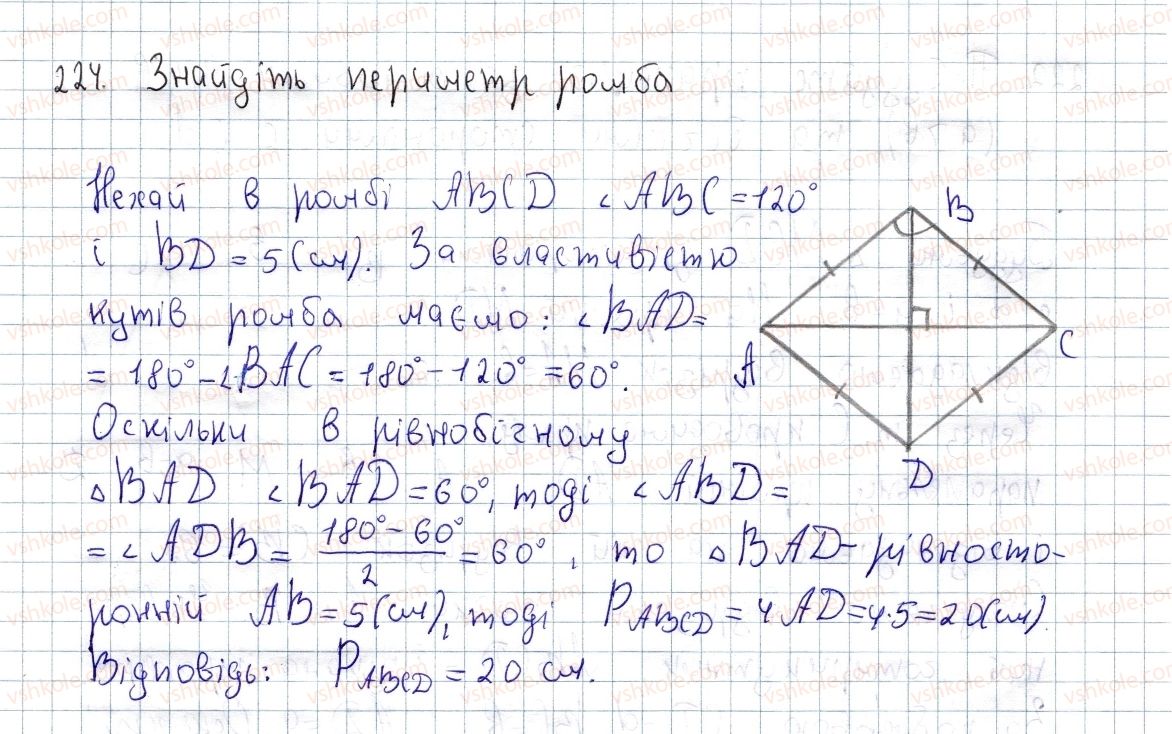 224. Знайдіть периметр ромба
Нехай в ромбі ABCD ∠ABC = 120°
і BD = 5 (см). За властивістю
кутів ромба маємо: ∠BAD =
= 180° - ∠BAC = 180° - 120° = 60°.
Оскільки в рівнобічному
△BAD ∠BAD = 60°, тоді ∠ABD =
= ∠ADB = (180° - 60°)/2 = 60°, то △BAD - рівносто-
ронній AB = 5 (см), тоді P_ABCD = 4AD = 4·5 = 20 (см).
Відповідь: P_ABCD = 20 см.
B
A
C
D
vshkole.com